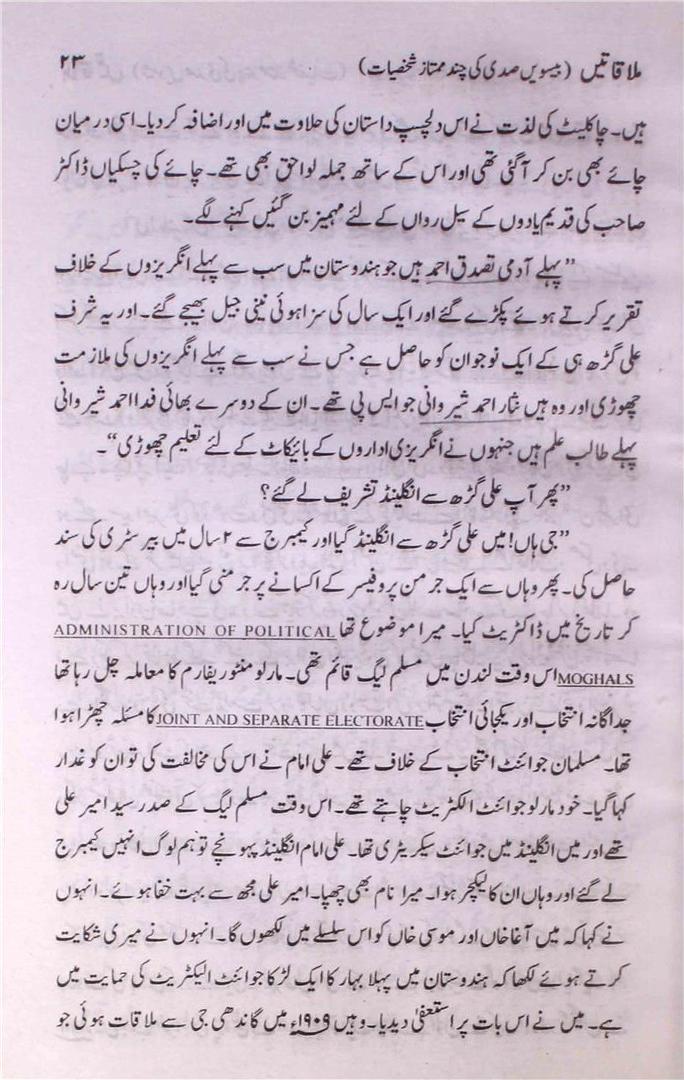 ملاقاتیں (بیسویں صدی کی چند ممتاز شخصیات) ۲۳
ہیں۔ چاکلیٹ کی لذت نے اس دلچسپ داستان کی حلاوت میں اور اضافہ کر دیا۔ اسی درمیان
چائے بھی بن کر آگئی تھی اور اس کے ساتھ جملہ لواحق بھی تھے۔ چائے کی چسکیاں ڈاکٹر
صاحب کی قدیم یادوں کے سیل رواں کے لئے مہمیز بن گئیں کہنے لگے۔
”پہلے آدمی تصدق احمد ہیں جو ہندوستان میں سب سے پہلے انگریزوں کے خلاف
تقریر کرتے ہوئے پکڑے گئے اور ایک سال کی سزا ہوئی نینی جیل بھیجے گئے۔ اور یہ شرف
علی گڑھ ہی کے ایک نوجوان کو حاصل ہے جس نے سب سے پہلے انگریزوں کی ملازمت
چھوڑی اور وہ ہیں نثار احمد شیروانی جو ایس پی تھے۔ ان کے دوسرے بھائی فدا احمد شیروانی
پہلے طالب علم ہیں جنہوں نے انگریزی اداروں کے بائیکاٹ کے لئے تعلیم چھوڑی“۔
”پھر آپ علی گڑھ سے انگلینڈ تشریف لے گئے؟
”جی ہاں! میں علی گڑھ سے انگلینڈ گیا اور کیمبرج سے ۲ سال میں بیرسٹری کی سند
حاصل کی۔ پھر وہاں سے ایک جرمن پروفیسر کے اکسانے پر جرمنی گیا اور وہاں تین سال رہ
کر تاریخ میں ڈاکٹریٹ کیا۔ میرا موضوع تھا ADMINISTRATION OF POLITICAL
MOGHALS اس وقت لندن میں مسلم لیگ قائم تھی۔ مارلو منٹو ریفارم کا معاملہ چل رہا تھا
جداگانہ انتخاب اور یکجائی انتخاب JOINT AND SEPARATE ELECTORATE کا مسئلہ چھڑا ہوا
تھا۔ مسلمان جوائنٹ انتخاب کے خلاف تھے۔ علی امام نے اس کی مخالفت کی تو ان کو غدار
کہا گیا۔ خود مارلو جوائنٹ الکٹریٹ چاہتے تھے۔ اس وقت مسلم لیگ کے صدر سید امیر علی
تھے اور میں انگلینڈ میں جوائنٹ سیکریٹری تھا۔ علی امام انگلینڈ پہونچے تو ہم لوگ انہیں کیمبرج
لے گئے اور وہاں ان کا لیکچر ہوا۔ میرا نام بھی چھپا۔ امیر علی مجھ سے بہت خفا ہوئے۔ انہوں
نے کہا کہ میں آغا خاں اور موسی خاں کو اس سلسلے میں لکھوں گا۔ انہوں نے میری شکایت
کرتے ہوئے لکھا کہ ہندوستان میں پہلا بہار کا ایک لڑکا جوائنٹ الیکٹریٹ کی حمایت میں
ہے۔ میں نے اس بات پر استعفیٰ دیدیا۔ وہیں ۱۹۰۹ء میں گاندھی جی سے ملاقات ہوئی جو